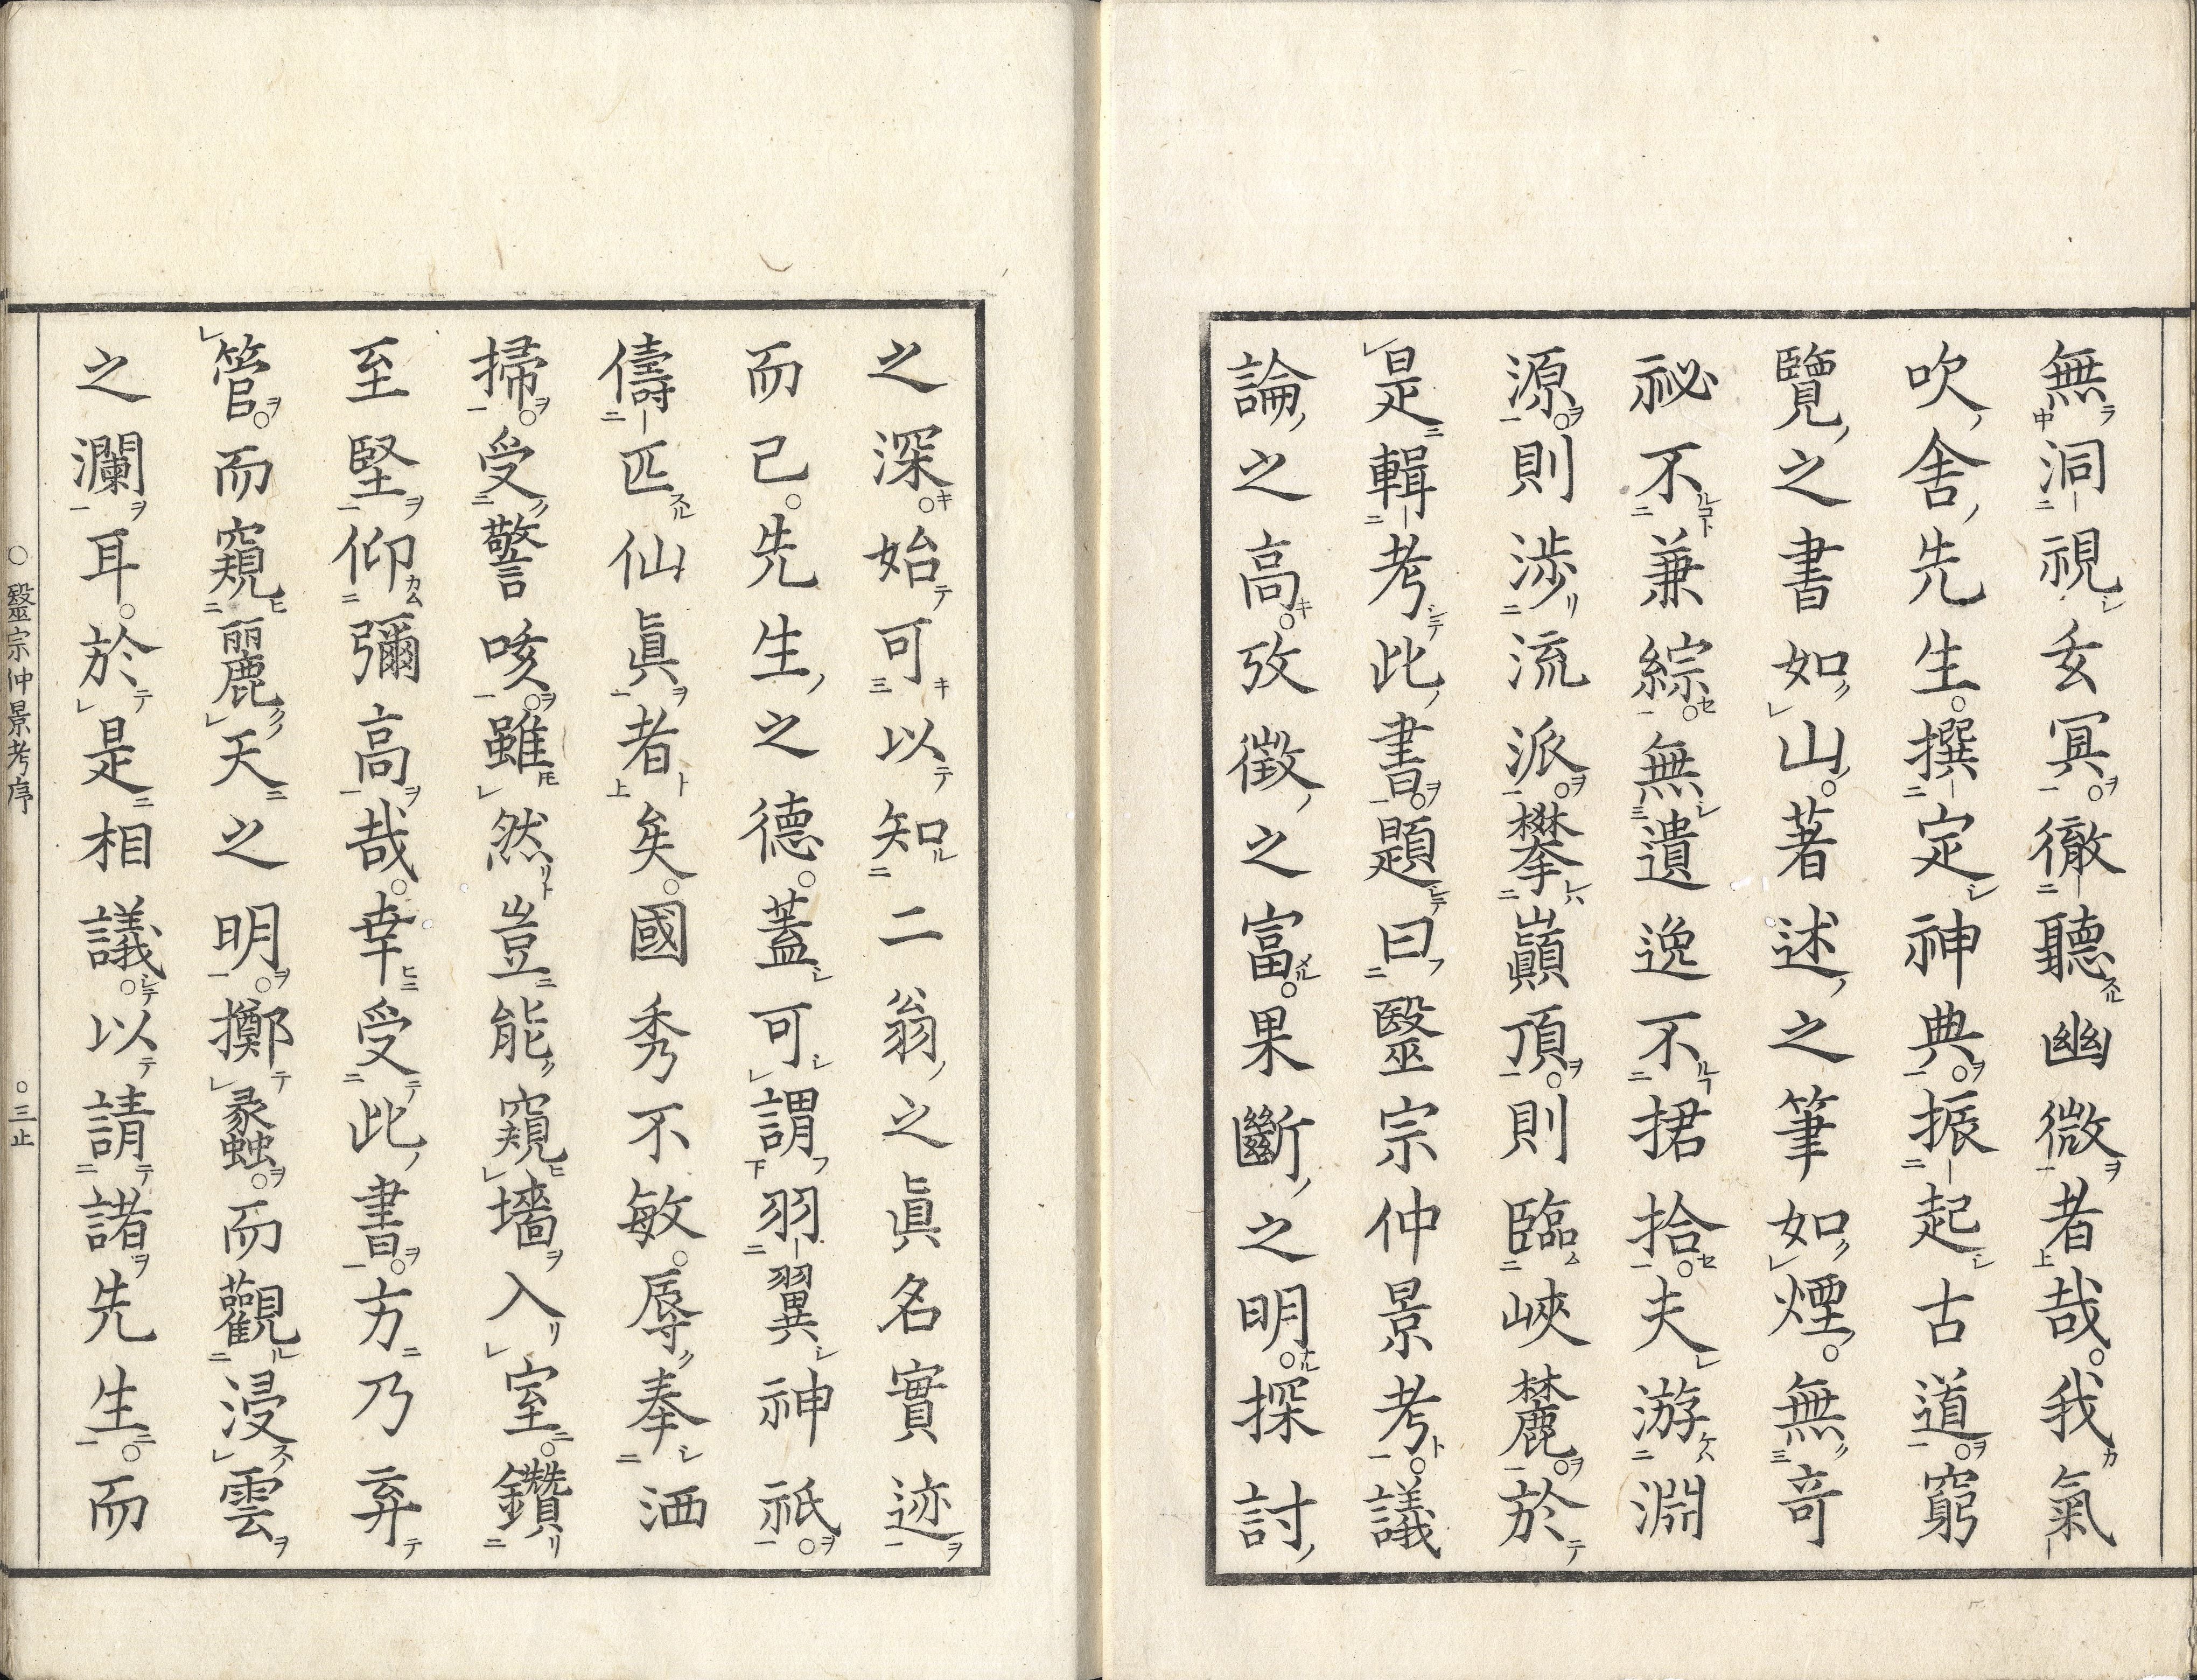 無洞視玄冥。徹聽幽微者哉。我氣
吹舍先生。撰定神典。振起古道。窮
覽之書如山。著述之筆如煙。無奇
祕不兼綜。無遺逸不捃拾。夫游淵
源。則涉流派。攀巓頂。則臨峽麓。於
是輯考此書。題曰毉宗仲景考。議
論之高。攷徵之富。果斷之明。探討
之深。始可以知二翁之眞名實迹
而已。先生之德。蓋可謂羽翼神祇。
儔匹仙眞者矣。國秀不敏。辱奉洒
掃。受警咳。雖然豈能窺墻入室。鑽
至堅仰彌高哉。幸受此書。方乃弃
管。而窺麗天之明。擲蠡。而觀浸雲
之瀾耳。於是相議。以請諸先生。而
○毉宗仲景考序 ○三止